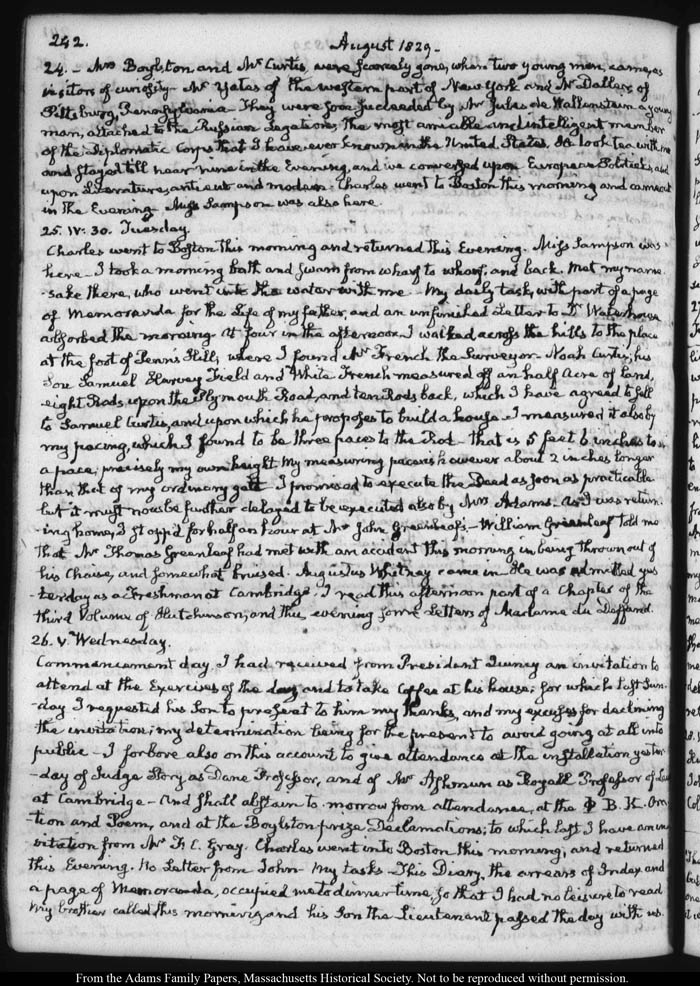 242.
August 1829.
24. - Mrs Boylston and Mr Curtis were scarcely gone, when two young men, came, as
visitors of curiosity - Mr Yates of the western part of New York and Mr Dallas of
Pittsburg, Pennsylvania - They were soon succeeded by Mr Jules de Wallenstein a young
man, attached to the Russian Legation, the most amiable and intelligent member
of the Diplomatic Corps that I have ever known in the United States. He took tea with me
and stayed till near nine in the Evening, and we conversed upon European Politicks, and
upon Literature, antient and modern. Charles went to Boston this morning and came out
in the Evening. Miss Sampson was also here.
25. IV: 30. Tuesday.
Charles went to Boston this morning and returned this Evening. Miss Sampson was
here - I took a morning bath and swam from wharf to wharf, and back. Met my name-
-sake there, who went into the water with me - My daily task, with part of a page
of Memoranda for the Life of my father, and an unfinished Letter to Dr Waterhouse
absorbed the morning. At four in the afternoon I walked across the hills to the place
at the foot of Penn's Hill, where I found Mr French the Surveyor - Noah Curtis, his
Son Samuel Harvey Field and White French measured off an half Acre of Land,
eight Rods upon the Plymouth Road, and ten Rods back, which I have agreed to sell
to Samuel Curtis, and upon which he proposes to build a house - I measured it also by
my pacing, which I found to be three paces to the Rod - that is 5 feet 6 inches to
a pace; precisely my own height. My measuring pace is however about 2 inches longer
than that of my ordinary gait. I promised to execute the Deed as soon as practicable
but it must now be further delayed to be executed also by Mrs Adams. As I was return-
-ing home, I stopp'd for half an hour at Mr John Greenleaf's - William Greenleaf told me
that Mr Thomas Greenleaf had met with an accident this morning in being thrown out of
his Chaise, and somewhat bruised. Augustus Whitney came in. He was admitted yes-
-terday as a Freshman at Cambridge. I read this afternoon part of a Chapter of the
third Volume of Hutchinson, and this evening some Letters of Madame du Deffand.
26. V. Wednesday.
Commencement day. I had received from President Quincy an invitation to
attend at the Exercises of the day and to take Coffee at his house; for which last Sun-
-day I requested his Son to present to him my thanks, and my excuses for declining
the invitation; my determination being for the present to avoid going at all into
public - I forbore also on this account to give attendance at the installation yester-
-day of Judge Story, as Dane Professor, and of Mr Ashmun as Royall Professor of Law
at Cambridge - And shall abstain to-morrow from attendance, at the Φ B. K. Ora-
-tion and Poem, and at the Boylston prize Declamations; to which last I have an in-
vitation from Mr F. C. Gray. Charles went into Boston this morning, and returned
this Evening. No Letter from John - My tasks - This Diary, the arrears of Index and
a page of Memoranda, occupied me to dinner time, so that I had no leisure to read
My brother called this morning and his Son the Lieutenant passed the day with us.
From the Adams Family Papers, Massachusetts Historical Society. Not to be reproduced without permission.